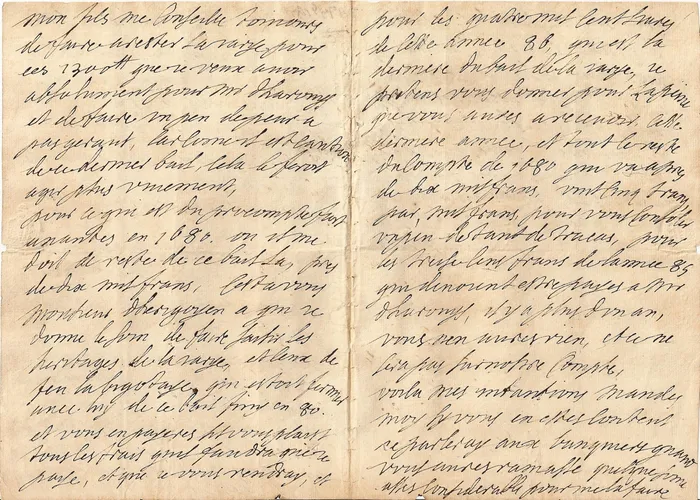 mon fils me conseille tousiours
de faire arester la raxe pour
ces 1300# que ie veux avoir
absolument pour mr dharonys
et de faire un peu de peur a
pasgeraut, car comme il est caution
de ce dernier bail, cela le feroit
agir plus vivement,
pour ce qui est du precompte fait
a nantes en 1680. on
doit de reste de ce bail la, pres
de dix mil frans, cest a vous
monsieur a qui ie
donne le soin de faire saisir les
heritages de la raxe, et ceux de
feu la bigotaye, qui estoit fermier
avec luy de ce bail fini en 80.
et vous en payeres sil vous plaist
tous les frais quil faudra que ie
paye, et que ie vous rendray, et
pour les quatre mil cent livres
de cette annee 86, qui est la
derniere du bail de la raxe, ie
pretens vous donner pour la peine
que vous aures a recevoir cette
derniere annee, et tout le reste
du compte de 1680 qui va a pres
de dix mil frans, vint cinq frans
par mil frans, pour vous consoler
un peu de tant de tracas, pour
les treise cens frans de lannee 85
qui devoient estre payes a mr
dharonys, il y a plus dun an,
vous nen aures rien, et ce ne
sera pas sur notre compte,
voila mes intantions mandes
moy sy vous en estes content
ie parleray aux banquiers quand
vous aures ramassé quelque somme
asses considerable pour me la faire